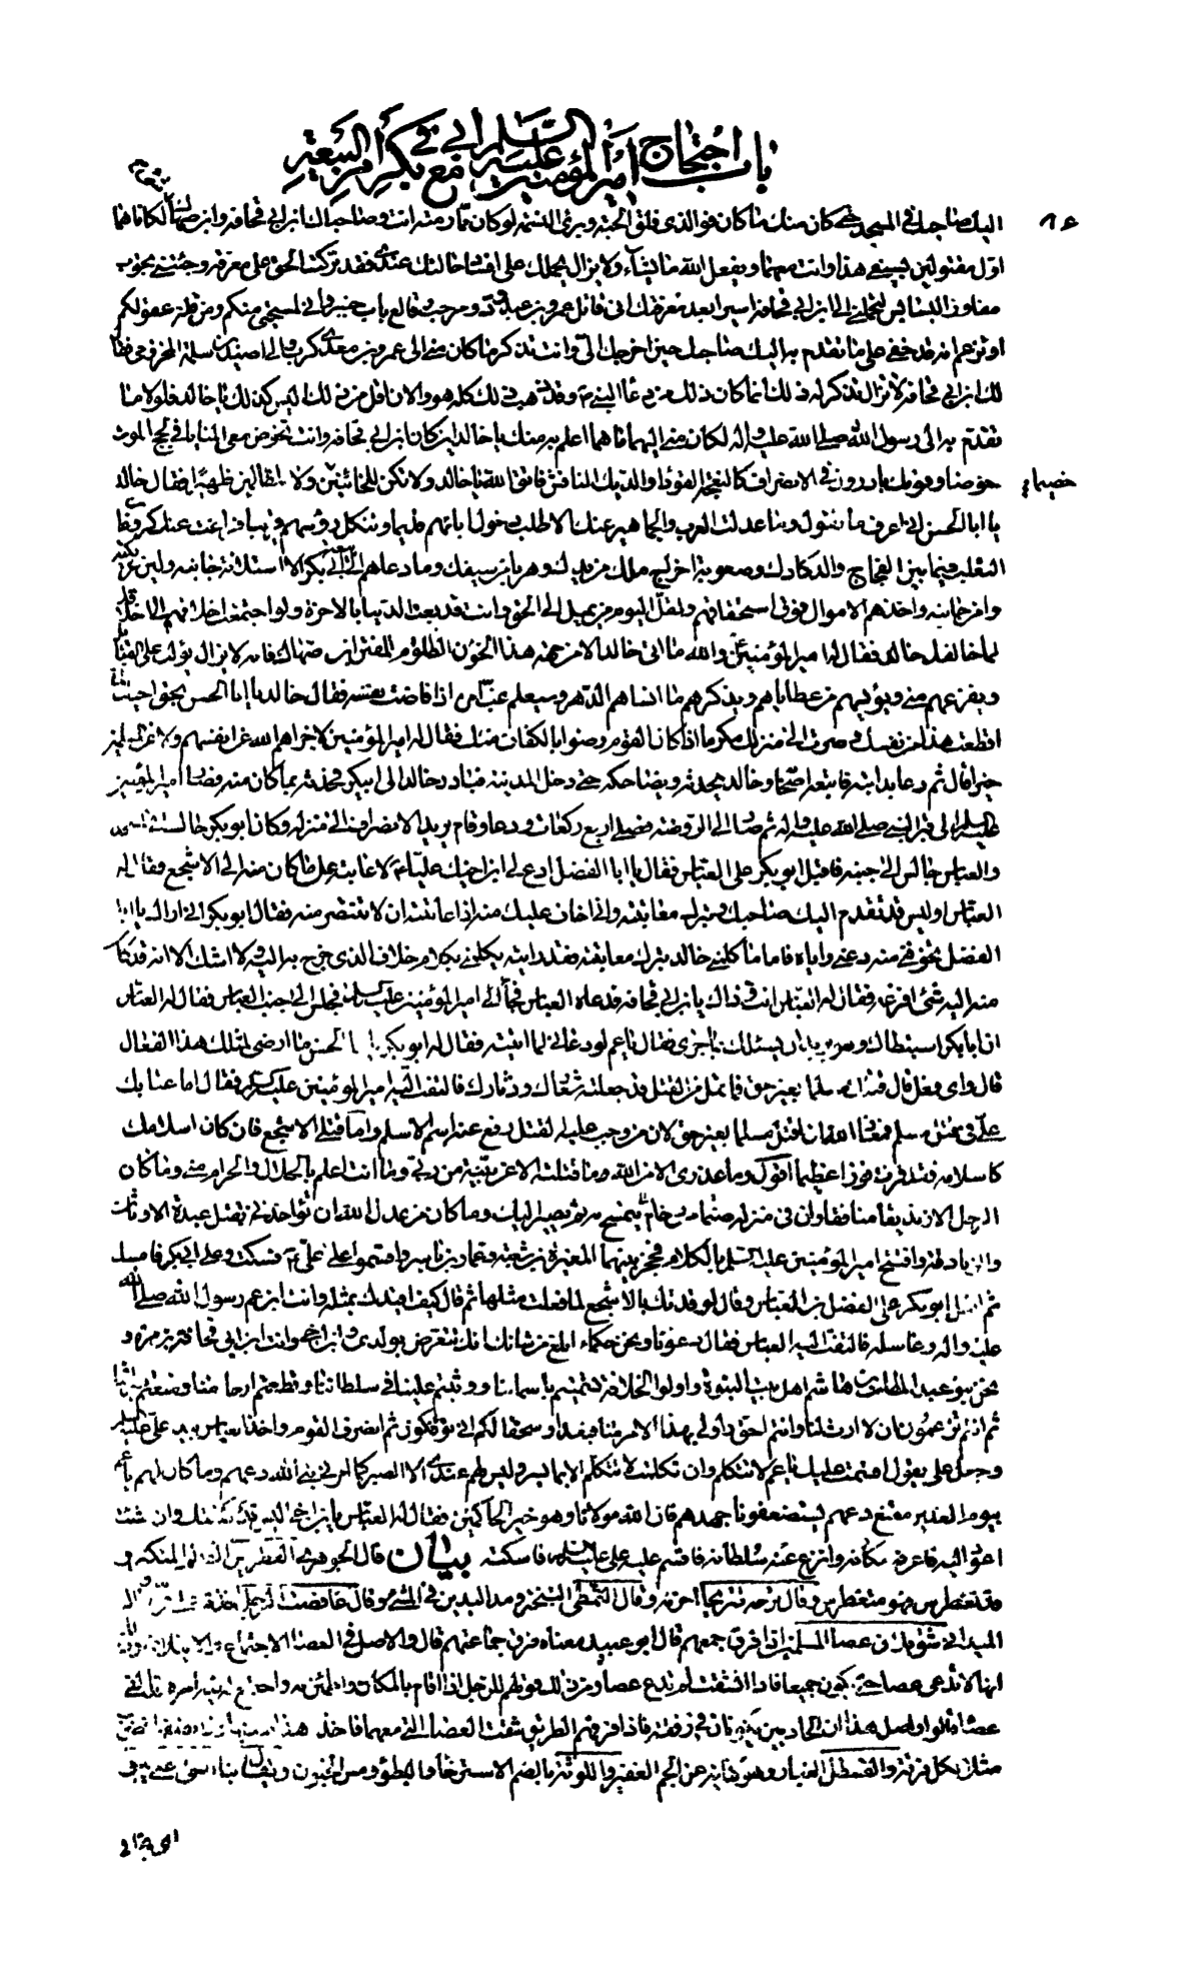 باب احتجاج امير المؤمنين عليه السلم مع ابي بكر في امر البيعة
اليك صاحبك في المسجد حتى كان منك ما كان فوالذي فلق الحبة وبرئ النسمة لو كان مما رمته انت وصاحباك ابن ابي قحافة وابن صهاك لكانا هما
اول مقتولين بسيفي هذا وانت معهما ويفعل الله ما يشاء ولا يزال يحملك على افساد حالتك عندي فقد تركت الحق على معرفة وجئتني تجوب
مفاوز البسابس لتحملني الى ابن ابي قحافة اسيرا بعد معرفتك اني قاتل عمرو بن عبد ود ومرحب وقالع باب خيبر واني لمستحيي منكم ومن قلة عقولكم
او تزعم انه قد خفي علي ما تقدم به اليك صاحبك حين اخرجك الي وانت تذكر ما كان مني الى عمرو بن معدي كرب والى اصيد بن سلمة المخزومي فقال
لك ابن ابي قحافة لا تزال تذكر له ذلك انما كان ذلك من دعاء النبي ص وقد ذهب ذلك كله وهو الان اقل من ذلك اليس كذلك يا خالد فلولا ما
تقدم به الي رسول الله صلى الله عليه واله لكان مني اليهما ما هما اعلم به منك يا خالد اين كان ابن ابي قحافة وانت تخوض معي المنايا في لجج الموت
خوضا وقومك بادرون في الانصراف كالنعجة القوداء والديك النافش فاتق الله يا خالد ولا تكن للخائنين ولا للظالمين ظهيرا فقال خالد
خصيما
يا ابا الحسن اني اعرف ما تقول وما عدلت العرب والجماهير عنك الا طلب ذحول ابائهم قديما وتنكل رؤسهم قريبا فراغت عنك كروغان
الثعلب فيما بين الفجاج والدكادك وصعوبة اخراج ملك من يدك وهربا من سيفك وما دعاهم الى بيعة ابي بكر الا استلانة جانبه ولين عريكته
وامن جانبه واخذهم الاموال فوق استحقاقهم ولقل اليوم من يميل الى الحق وانت قد بعت الدنيا بالاخرة ولو اجتمعت اخلاقهم الى اخلاقك
لما خالفك خالد فقال له امير المؤمنين والله ما اتي خالد الا من جهة هذا الخؤن الظلوم المفتن ابن صهاك فانه لا يزال يؤلب علي القبائل
ويفزعهم مني ويؤيسهم من عطاياهم ويذكرهم ما انساهم الدهر وسيعلم غب امره اذا فاضت نفسه فقال خالد يا ابا الحسن بحق اخيك لما
قطعت هذا من نفسك وصرت الى منزلك مكرما اذا كان القوم رضوا بالكفاف منك فقال له امير المؤمنين لا جزاهم الله عن انفسهم ولا عن المسلمين
خيرا قال ثم دعا بدابته فاتبعه اصحابه وخالد يحدثه ويضاحكه حتى دخل المدينة فبادر خالد الى ابي بكر فحدثه بما كان منه فصار امير المؤمنين
عليه السلم الى قبر النبي صلى الله عليه واله ثم صار الى الروضة فصلى اربع ركعات ودعا وقام يريد الانصراف الى منزله وكان ابو بكر جالسا في المسجد
والعباس جالس الى جنبه فاقبل ابو بكر على العباس فقال يا ابا الفضل ادع لي ابن اخيك عليا لاعاتبه على ما كان منه الى الاشجع فقال له
العباس اوليس قد تقدم اليك صاحبك بترك معاتبته واني اخاف عليك منه اذا عاتبته ان لا تنتصر منه فقال ابو بكر اني اراك يا ابا
الفضل تخوفني منه دعني واياه فاما ما كلمني خالد بترك معاتبته فقد رايته يكلمني بكلام خلاف الذي خرج به اليه ولا اشك الا انه قد كان
منه اليه شيء افزعه فقال له العباس انت وذاك يا ابن ابي قحافة فدعاه العباس فجاء امير المؤمنين عليه السلم فجلس الى جنب العباس فقال له العباس
ان ابا بكر استبطاك وهو يريد ان يسئلك بما جرى فقال يا عم لو دعاني لما اتيته فقال له ابو بكر يا ابا الحسن ما ارضى لمثلك هذا الفعال
قال واي فعل قال قتلك مسلما بغير حق فما تمل من القتل قد جعلته شعارك ودثارك فالتفت اليه امير المؤمنين عليه السلم فقال اما عتابك
علي في قتل مسلم فمعاذ الله ان اقتل مسلما بغير حق لان من وجب عليه القتل رفع عنه اسم الاسلام واما قتلي الاشجع فان كان اسلامك
كاسلامه فقد فزت فوزا عظيما اقول وما عذري الا من الله وما قتلته الا عن بينة من ربي وما انت اعلم بالحلال والحرام مني وما كان
الرجل الا زنديقا منافقا وان في منزله صنما من رخام يتمسح به ثم يصير اليك وما كان من عدل الله ان تؤاخذني بقتل عبدة الاوثان
والزنادقة وافتتح امير المؤمنين عليه السلم بالكلام فحجز بينهما المغيرة بن شعبة وعمار بن ياسر واقسموا على علي ع فسكت وعلى ابي بكر فامسك
ثم اقبل ابو بكر على الفضل بن العباس وقال لو قدتك بالاشجع لما فعلت مثلها ثم قال كيف اقيدك بمثله وانت ابن عم رسول الله صلى الله
عليه واله وغاسله فالتفت اليه العباس فقال دعونا ونحن حكماء ابلغ من شانك انك تتعرض بولدي وابن اخي وانت ابن ابي قحافة بن مرة و
نحن بنو عبد المطلب بن هاشم اهل بيت النبوة واولوا الخلافة تسميتم باسمائنا ووثبتم علينا في سلطاننا وقطعتم ارحامنا ومنعتم ميراثنا
ثم انتم تزعمون ان لا ارث لنا وانتم احق واولى بهذا الامر منا فبعدا وسحقا لكم انى تؤفكون ثم انصرف القوم واخذ العباس بيد علي عليه السلم
وجعل علي يقول اقسمت عليك يا عم لا تتكلم وان تكلمت لا تتكلم الا بما يسر وليس لهم عندي الا الصبر كما امرني نبي الله دعهم وما كان لهم يا عم
بيوم الغدير مقنع دعهم يستضعفونا جهدهم فان الله مولانا وهو خير الحاكمين فقال له العباس يا ابن اخي اليس قد كفيتك وان شئت
اعود اليه فاعرفه مكانه وانزع عنه سلطانه فاقسم عليه علي عليه السلم فاسكته بيان قال الجوهري الغطريس الظالم المتكبر و
قد تغطرس فهو متغطرس وقال ترحه تتريحا احزنه وقال التمطي التبختر ومد اليدين في المشي وقال غافصت الرجل اخذته على غرة وقال
الميداني شق فلان عصا المسلمين اذا فرق جمعهم قال ابو عبيد معناه فرق جماعتهم قال والاصل في العصا الاجتماع والايتلاف وذلك
انها لا تدعى عصا حتى تكون جميعا فاذا انشقت لم تدع عصا ومن ذلك قولهم للرجل اذا اقام بالمكان واطمئن به واجتمع له فيه امره قد القى
عصاه قالوا واصل هذا ان الحاديين يكونان في رفقة فاذا فرقهم الطريق شقت العصا التي معهما فاخذ هذا نصفها وهذا نصفها
مثلا لكل فرقة والقسطل الغبار وهو كناية عن الجم الغفير واللوثة بالضم الاسترخاء والبطؤ ومس الجنون